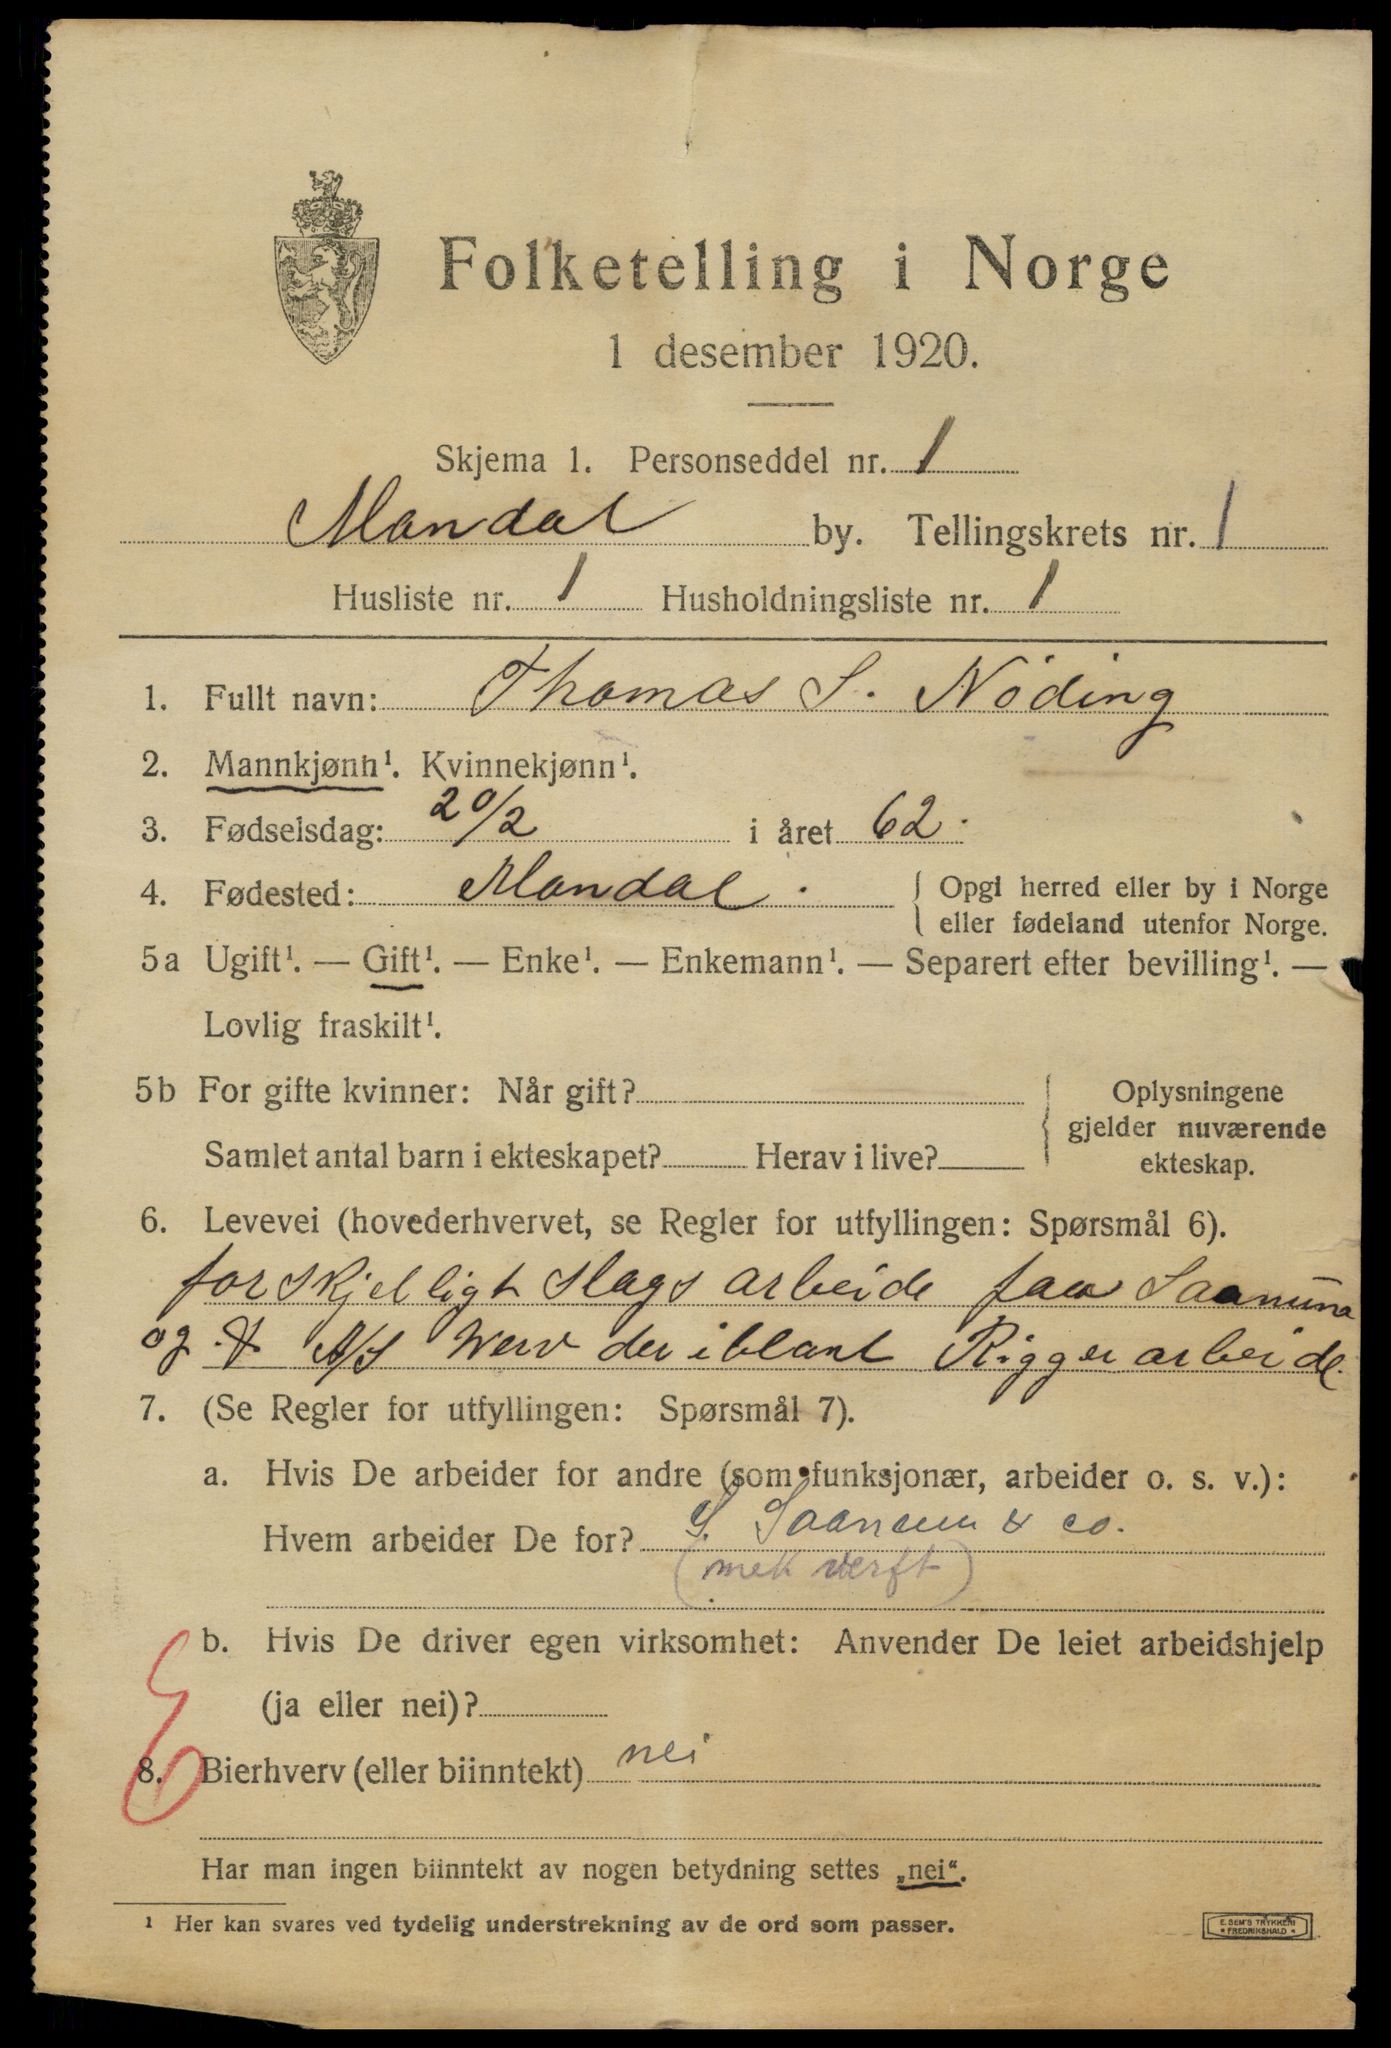 Folketelling i Norge
1 desember 1920.
Skjema 1. Personseddel nr. 1
Mandal by. Tellingskrets nr. 1
Husliste nr. 1 Husholdningsliste nr. 1
1. Fullt navn: Thomas S. Nöding
2. Mannkjønn¹. Kvinnekjønn¹.
3. Fødselsdag: 20/2 i året 62.
4. Fødested: Mandal. { Opgi herred eller by i Norge
eller fødeland utenfor Norge.
5a Ugift¹. — Gift¹. — Enke¹. — Enkemann¹. — Separert efter bevilling¹. —
Lovlig fraskilt¹.
5b For gifte kvinner: Når gift? { Oplysningene
gjelder nuværende
Samlet antal barn i ekteskapet? Herav i live? ekteskap.
6. Levevei (hovederhvervet, se Regler for utfyllingen: Spørsmål 6).
forskjelligt slags arbeide paa Saanums
og A/S Werv der iblant Rigger arbeide.
7. (Se Regler for utfyllingen: Spørsmål 7).
a. Hvis De arbeider for andre (som funksjonær, arbeider o. s. v.):
Hvem arbeider De for? S. Saanum & co.
(mek verft)
b. Hvis De driver egen virksomhet: Anvender De leiet arbeidshjelp
(ja eller nei)?
8. Bierhverv (eller biinntekt) nei
Har man ingen biinntekt av nogen betydning settes „nei“.
¹ Her kan svares ved tydelig understrekning av de ord som passer.
E. SEM'S TRYKKERI
* FREDRIKSHALD *